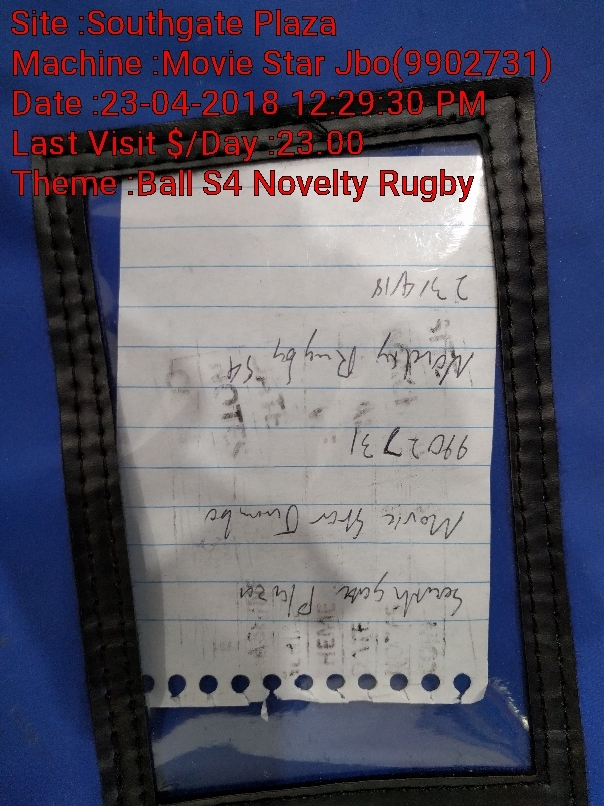 Site :Southgate Plaza
Machine :Movie Star Jbo(9902731)
Date :23-04-2018 12:29:30 PM
Last Visit $/Day :23.00
Theme :Ball S4 Novelty Rugby
Southgate Plaza
Movie Star Jumbo
9902731
Novelty Rugby S4
23/4/18